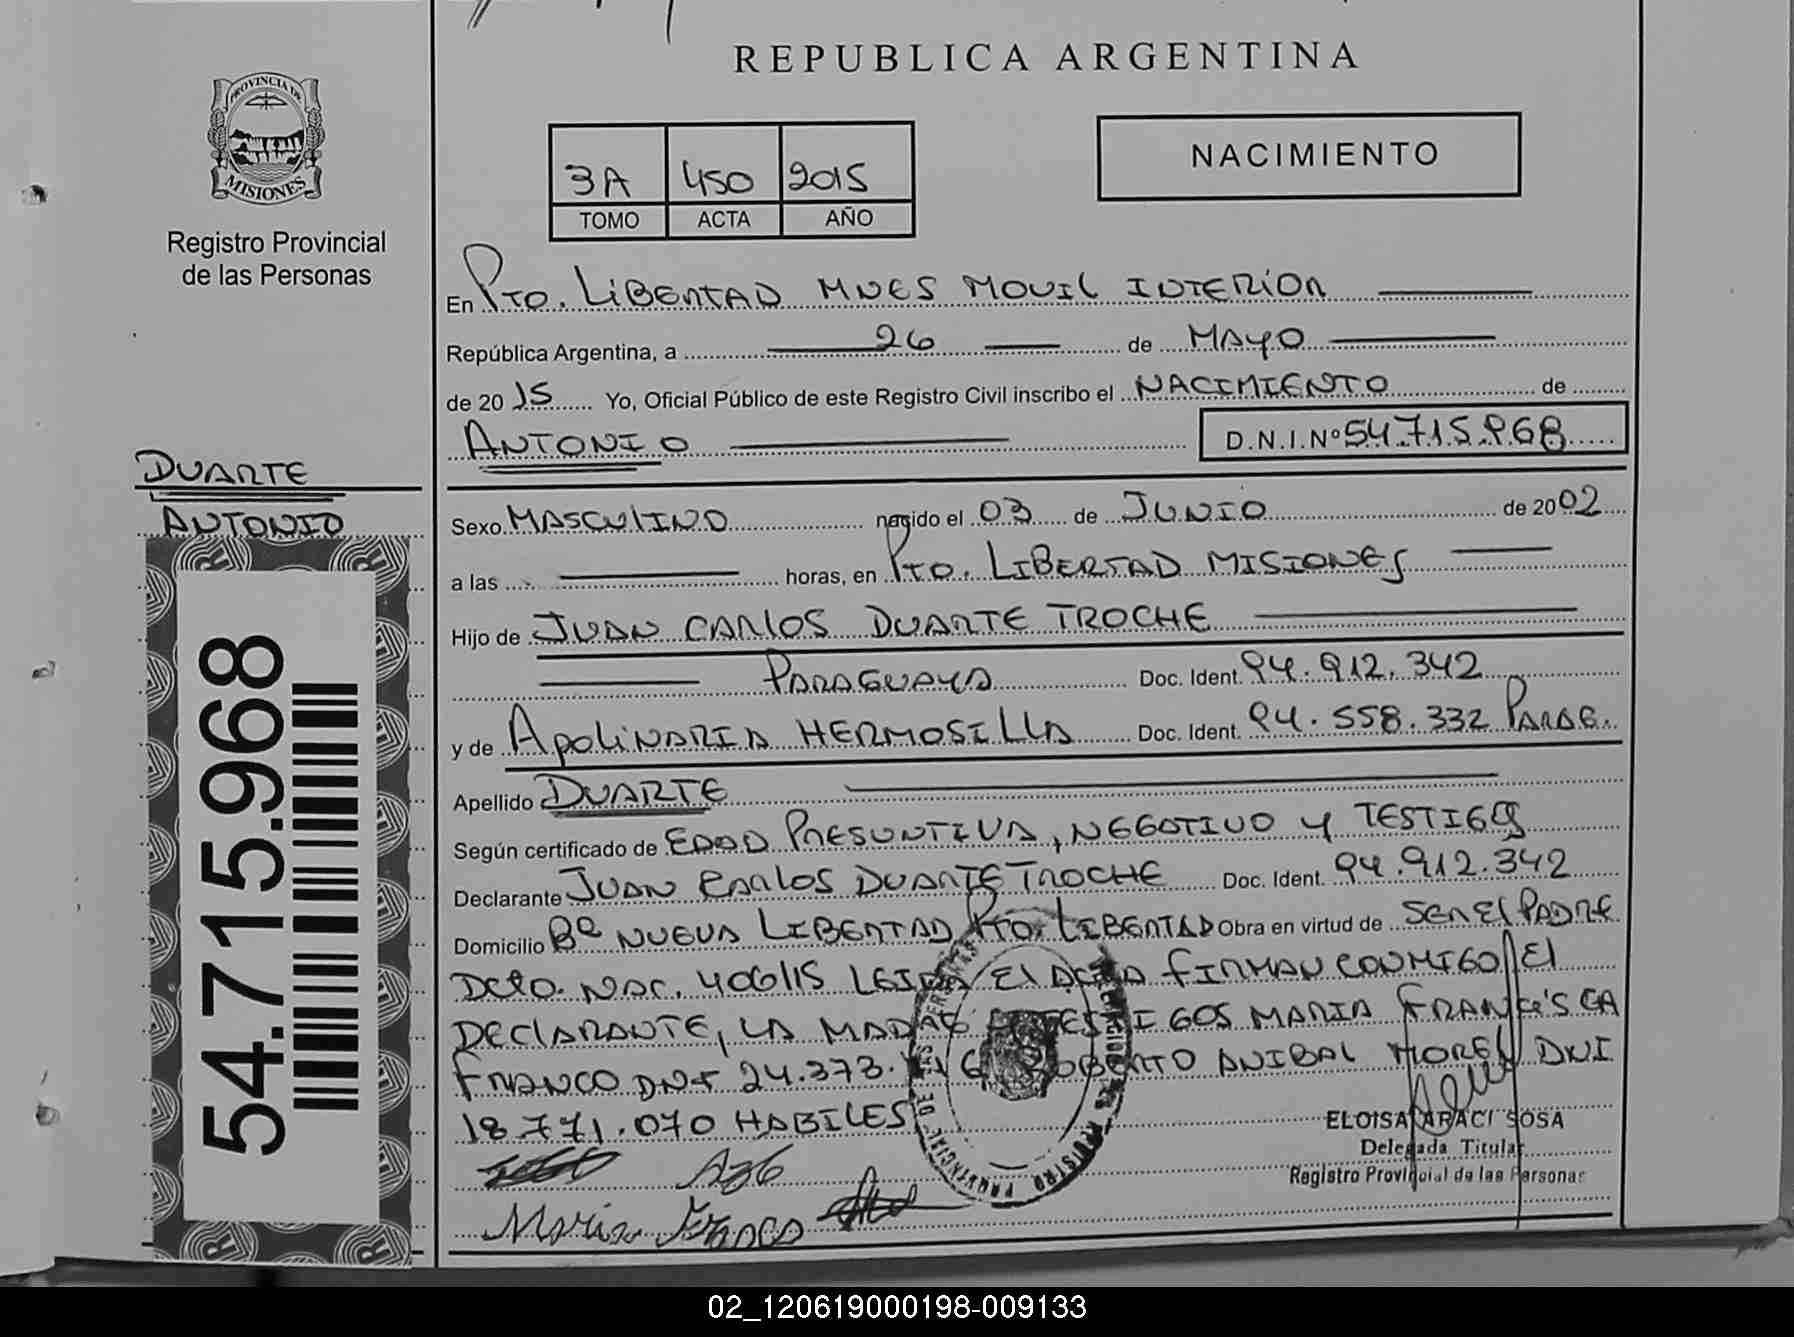 REPUBLICA ARGENTINA
PROVINCIA DE
MISIONES
Registro Provincial
de las Personas
3A 450 2015
TOMO ACTA AÑO
NACIMIENTO
En Pto. LIBERTAD MNES MOVIL INTERIOR
República Argentina, a 26 de MAYO
de 2015 Yo, Oficial Público de este Registro Civil inscribo el NACIMIENTO de
ANTONIO D.N.I.Nº 54.715.968
DUARTE
ANTONIO
54.715.968
Sexo MASCULINO nacido el 03 de JUNIO de 2002
a las horas, en Pto. LIBERTAD MISIONES
Hijo de JUAN CARLOS DUARTE TROCHE
PARAGUAYA Doc. Ident. 94.912.342
y de APOLINARIA HERMOSILLA Doc. Ident. 94.558.332 PARAG.
Apellido DUARTE
Según certificado de EDAD PRESUNTIVA, NEGATIVO Y TESTIGOS
Declarante JUAN CARLOS DUARTE TROCHE Doc. Ident. 94.912.342
Domicilio Bº NUEVA LIBERTAD Pto. LIBERTAD Obra en virtud de SER EL PADRE
Dcto. NAC. 406/15 LEIDA EL ACTA FIRMAN CONMIGO EL
DECLARANTE, LA MADRE TESTIGOS MARIA FRANCISCA
FRANCO DNI 24.373. ROBERTO ANIBAL MOREL DNI
18.771.070 HABILES
ELOISA ARACI SOSA
Delegada Titular
Registro Provincial de las Personas
Maria Franco
02_120619000198-009133